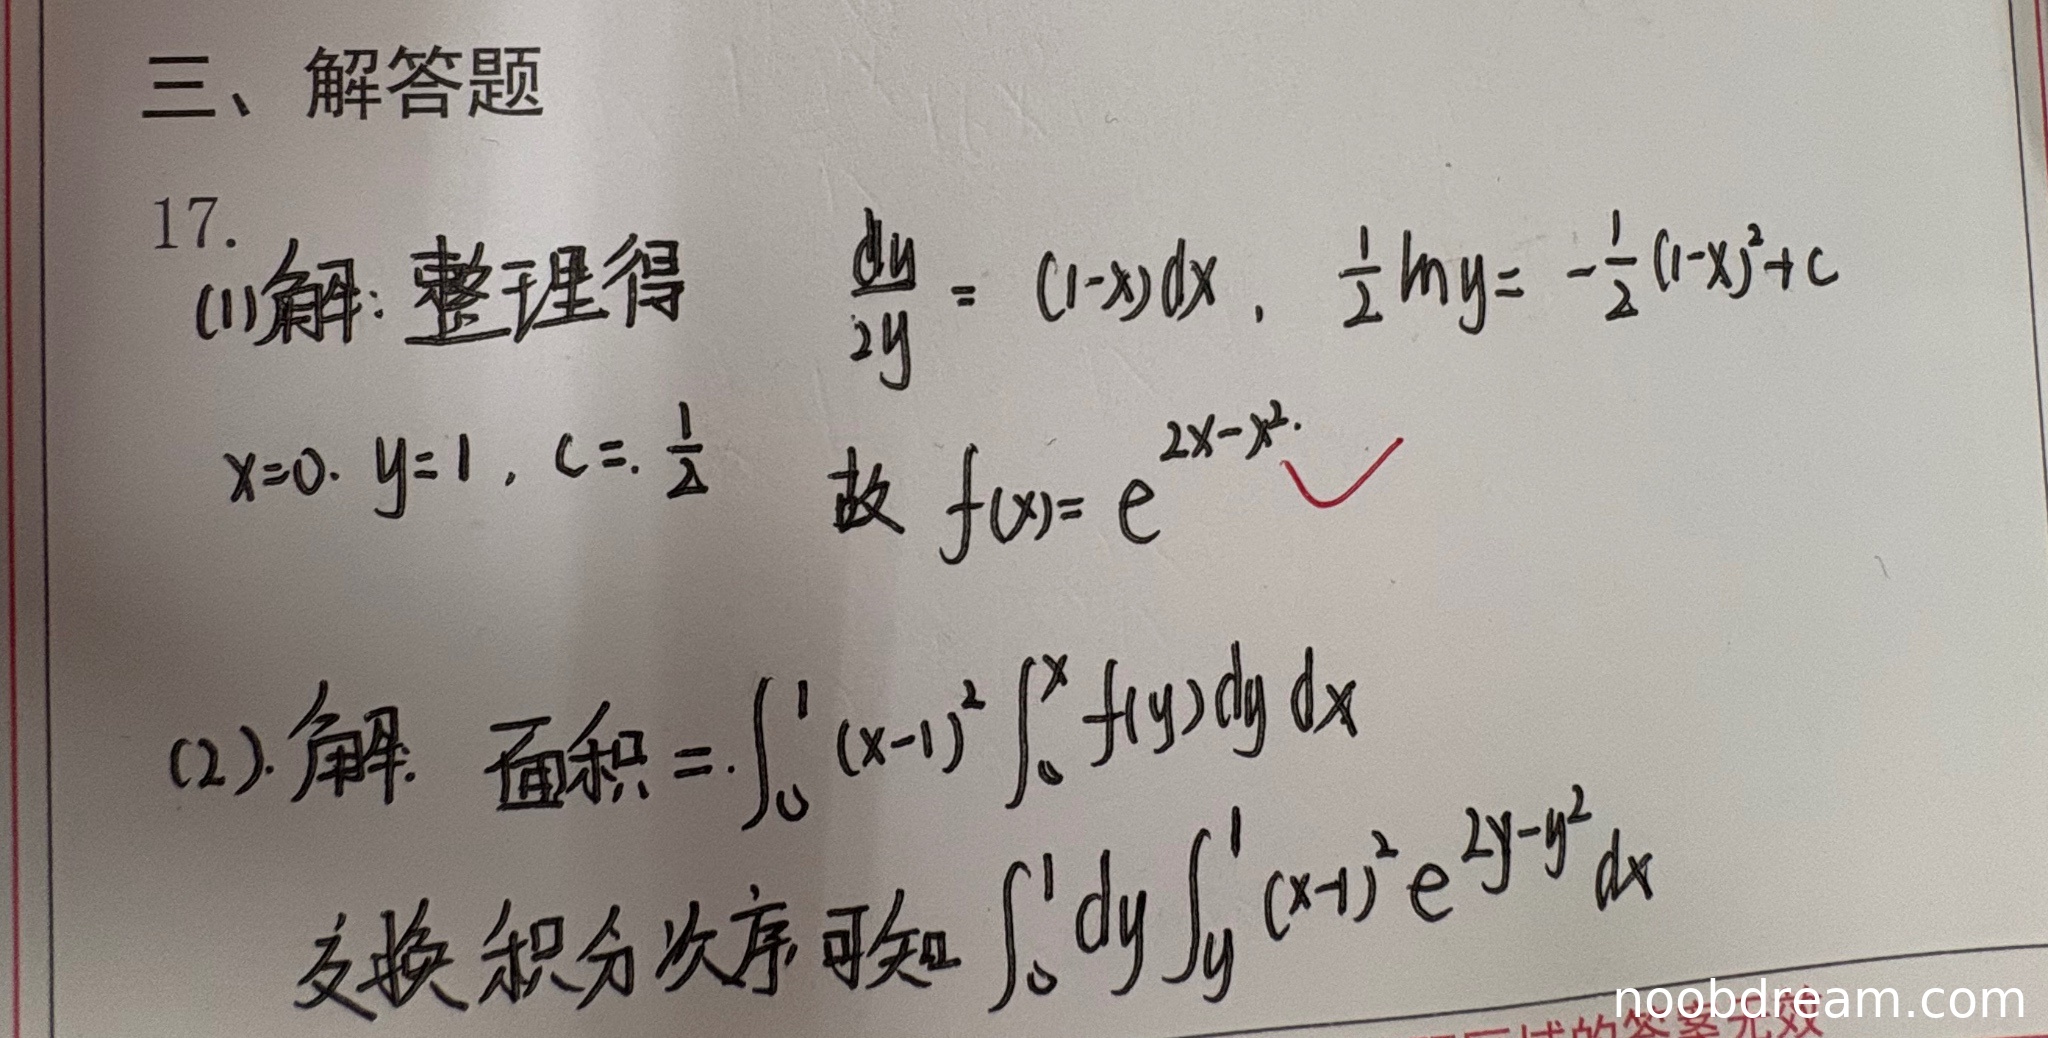 三、解答题
17.
(1)解:整理得 dy/2y = (1-x)dx, 1/2 ln y = -1/2 (1-x)²+c
x=0. y=1, c=. 1/2 故 f(x)= e^{2x-x²}.
(2).解. 面积=.∫₀¹ (x-1)² ∫₀ˣ f(y)dy dx
交换积分次序可知 ∫₀¹ dy ∫_y¹ (x-1)² e^{2y-y²} dx
noobdream.com
区域的答案无效